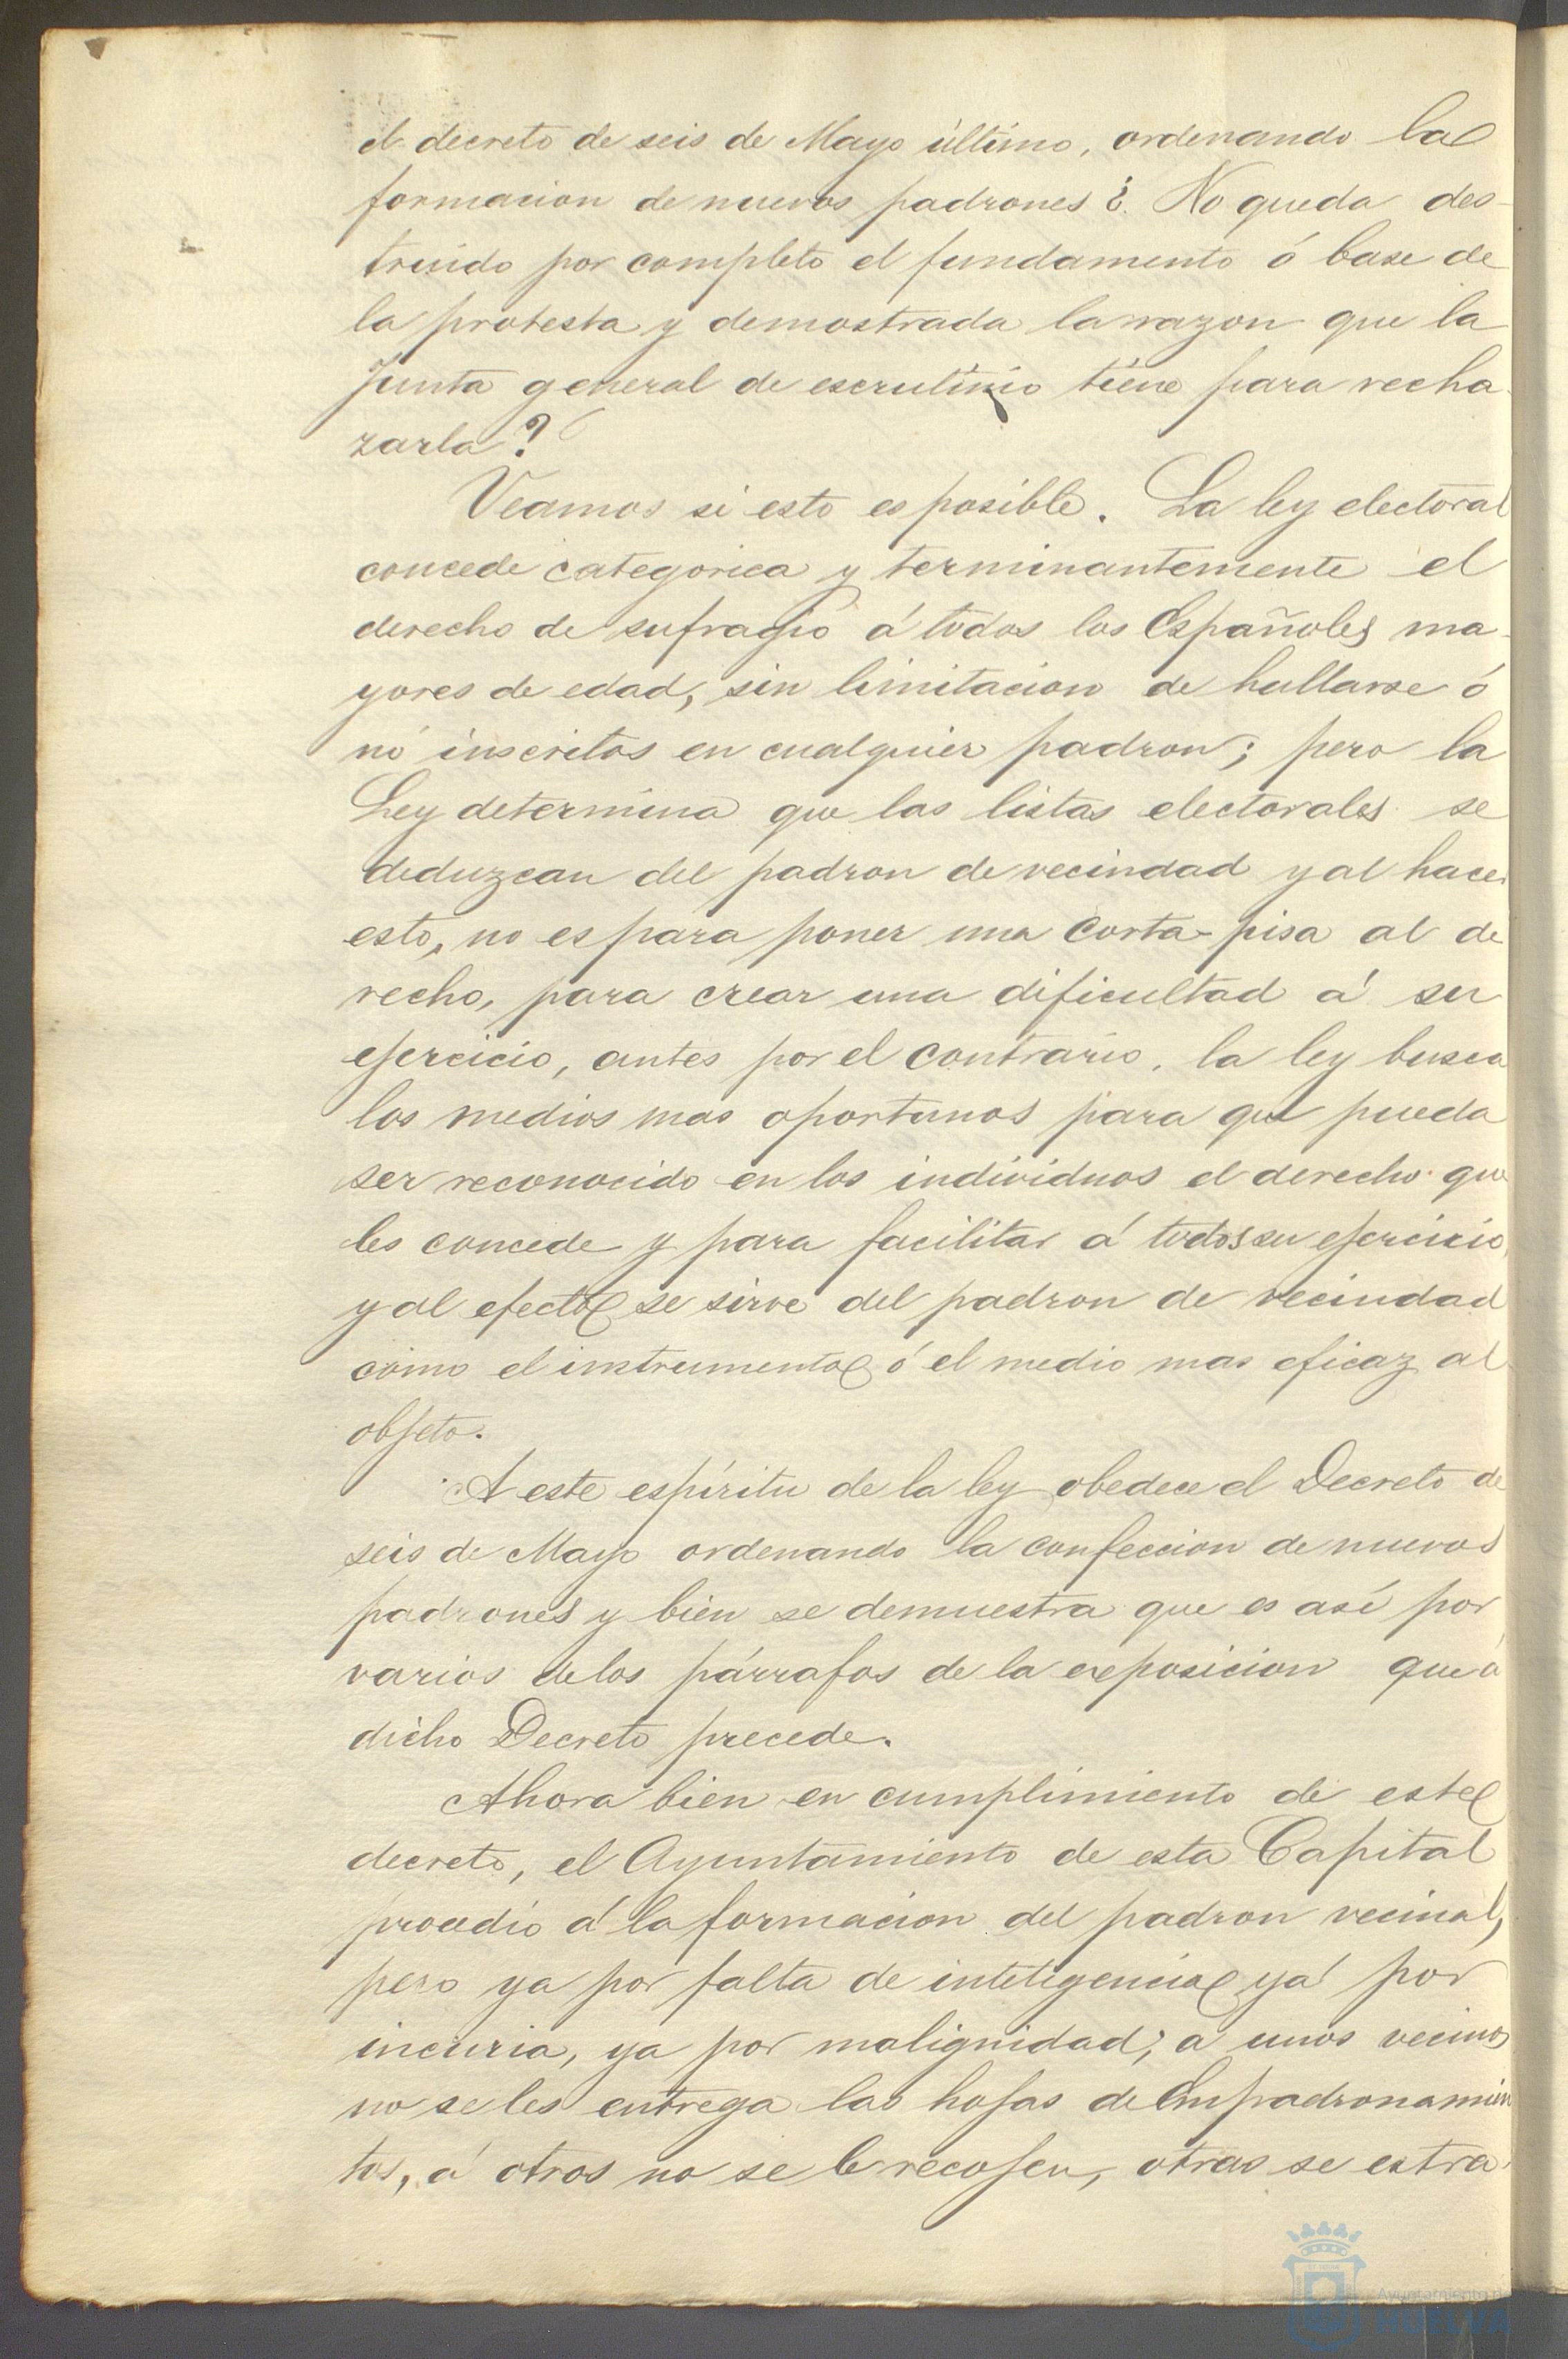 el decreto de seis de Mayo último, ordenando la
formacion de nuevos padrones ¿. No queda des-
truido por completo el fundamento ó base de
la protesta y demostrada la razon que la
Junta general de escrutinio tiene para recha-
zarla?
Veamos si esto es posible. La ley electoral
concede categorica y terminantemente el
derecho de sufragio á todos los Españoles ma-
yores de edad, sin limitacion de hallarse ó
nó inscritos en cualquier padron; pero la
Ley determina que las listas electorales se
deduzcan del padron de vecindad y al hacer
esto, no es para poner una corta-pisa al de
recho, para crear una dificultad á su
ejercicio, antes por el contrario, la ley busca
los medios mas oportunos para que pueda
ser reconocido en los individuos el derecho que
les concede y para facilitar á todos su ejercicio,
y al efecto se sirve del padron de vecindad
como el instrumento ó el medio mas eficaz al
objeto.
A este espíritu de la ley obedece el Decreto de
seis de Mayo ordenando la confeccion de nuevos
padrones y bien se demuestra que es asi por
varios de los párrafos de la exposicion que á
dicho Decreto precede.
Ahora bien en cumplimiento de este
decreto, el Ayuntamiento de esta Capital
procedió á la formacion del padron vecinal,
pero ya por falta de inteligencia yá por
incuria, ya por malignidad, á unos vecinos
no se les entrega las hojas de Empadronamien
tos, á otros no se le recojen, otras se estra-
Ayuntamiento de
HUELVA